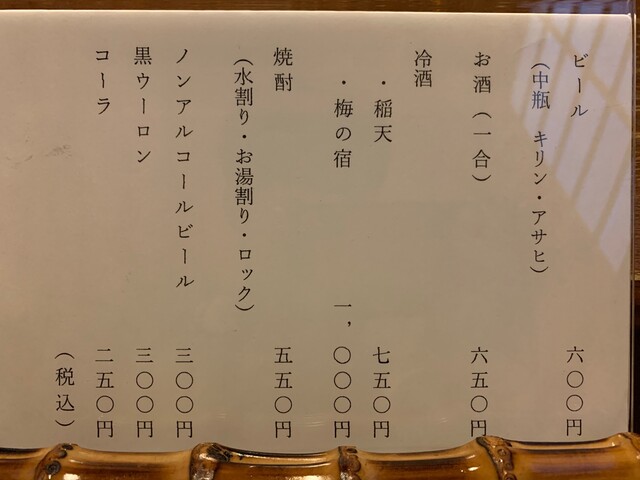 ビール 六〇〇円
（中瓶 キリン・アサヒ）
お酒（一合） 六五〇円
冷酒
・稲天 七五〇円
・梅の宿 一，〇〇〇円
焼酎 五五〇円
（水割り・お湯割り・ロック）
ノンアルコールビール 三〇〇円
黒ウーロン 三〇〇円
コーラ 二五〇円
（税込）